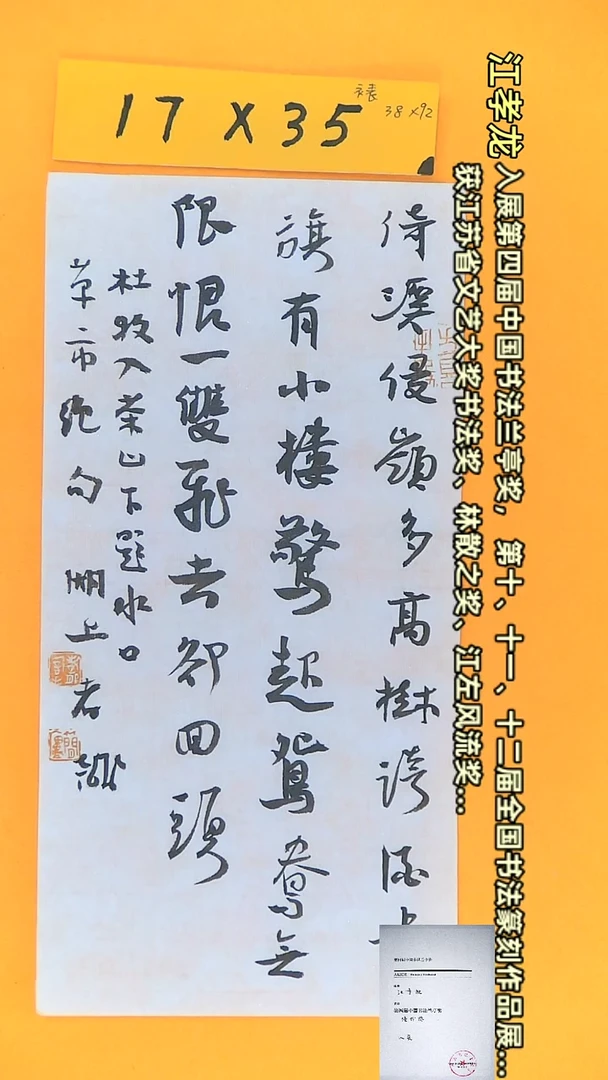 17 X 35
裱 38×92
江孝龙 入展第四届中国书法兰亭奖，第十、十一、十二届全国书法篆刻作品展...
获江苏省文艺大奖书法奖、林散之奖、江左风流奖...
倚溪侵嶺多高樹誇酒
旗有小樓驚起鴛鴦無
限恨一雙飛去卻回頭
杜牧入茶山下題水口
草市絶句 上孝龍